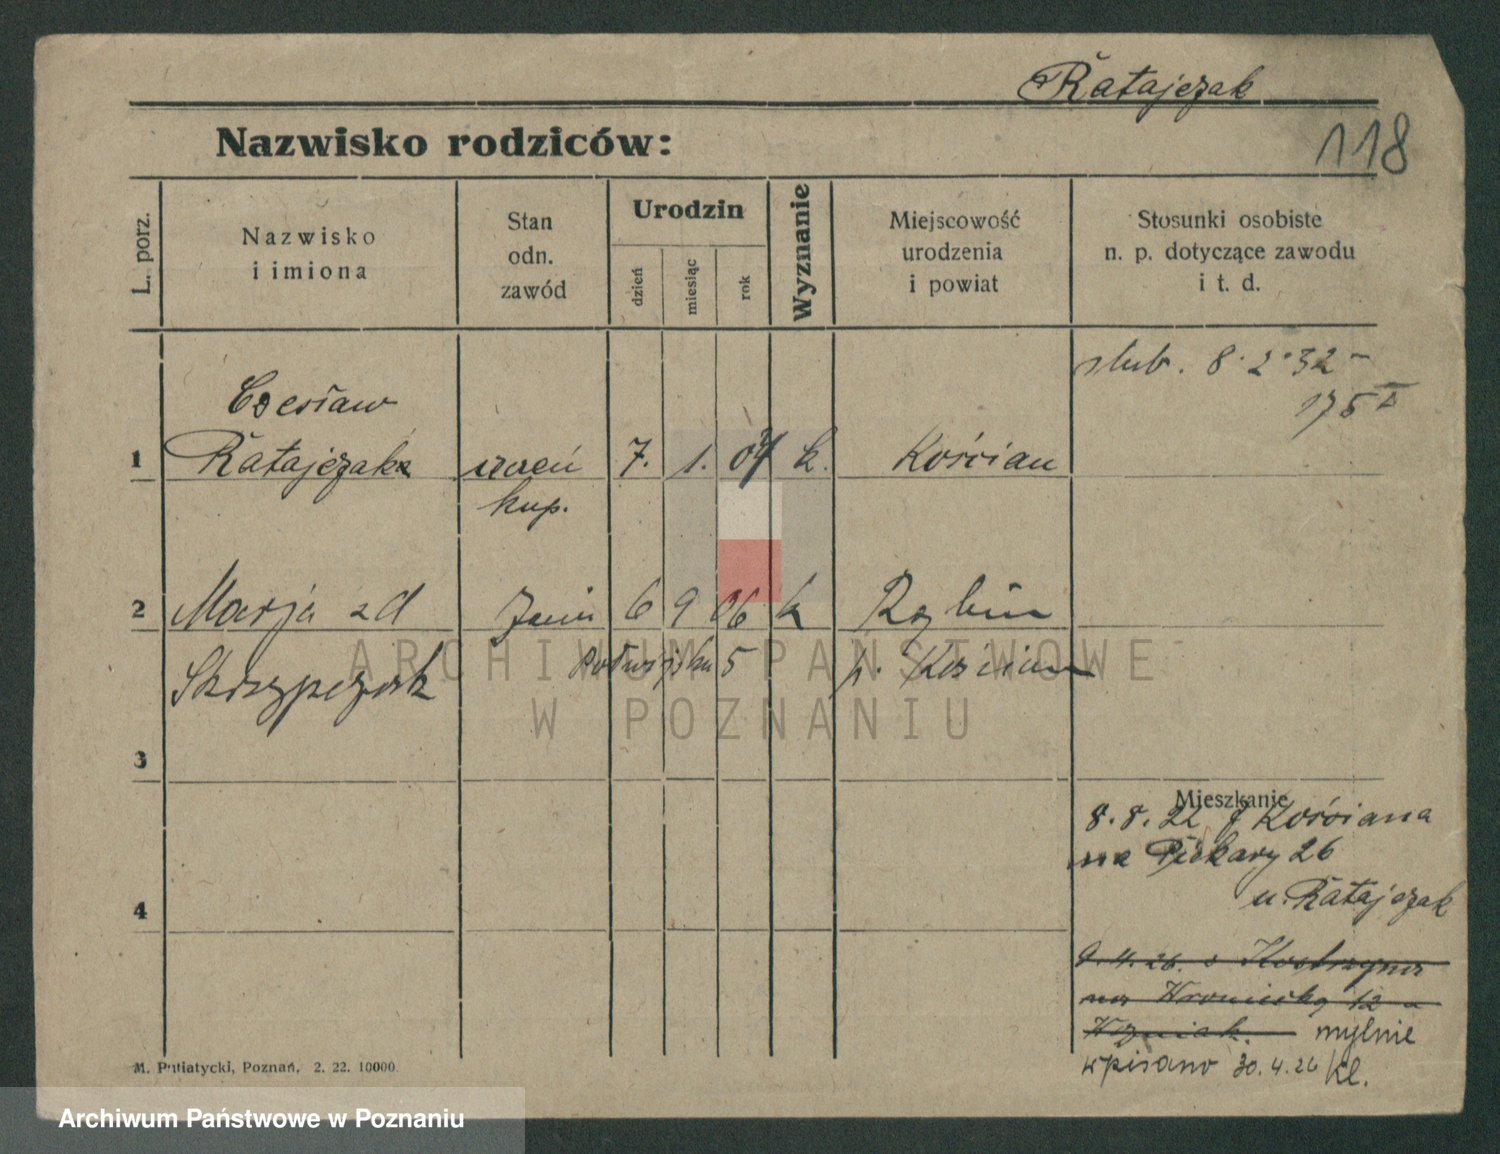 Ratajczak
118
Nazwisko rodziców:
L. porz.
Nazwisko
i imiona
Stan
odn.
zawód
Urodzin
dzień
miesiąc
rok
Wyznanie
Miejscowość
urodzenia
i powiat
Stosunki osobiste
n. p. dotyczące zawodu
i t. d.
ślub. 8.2.32 -
175
Czesław
1 Ratajczak uczeń 7. 1. 04 k. Kościan
kup.
2 Marja zd 6 9 06 k
Skrzypczak 5 p. Kościan
3
4
Mieszkanie
8.8.22 z Kościana
na Piekary 26
u. Ratajczak
9.4.26. z Kostrzyna
na Wroniecką 12 u
Woźniak. mylnie
wpisano 30.4.26 Kl.
M. Putiatycki, Poznań, 2. 22. 10000
ARCHIWUM PAŃSTWOWE
W POZNANIU
Archiwum Państwowe w Poznaniu